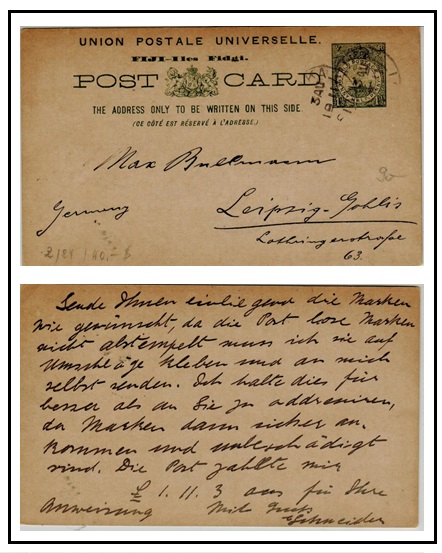 UNION POSTALE UNIVERSELLE.
FIJI-Iles Fidgi.
POST CARD
THE ADDRESS ONLY TO BE WRITTEN ON THIS SIDE.
(CE CÔTÉ EST RÉSERVÉ À L'ADRESSE.)
Max
Germany
Leipzig-Gohlis
Lothringerstraße
63.
Sende Ihnen einliegend die Marken
wie gewünscht, da die Post lose Marken
nicht abstempelt muss ich sie auf
Umschläge kleben und an mich
selbst senden. Ich halte dies für
besser als an Sie zu addressiren,
da Marken dann sicher an-
kommen und unbeschädigt
sind. Die Post zahlte mir
£ 1. 11. 3 aus für Ihre
Anweisung Mit Gruss
Schneider